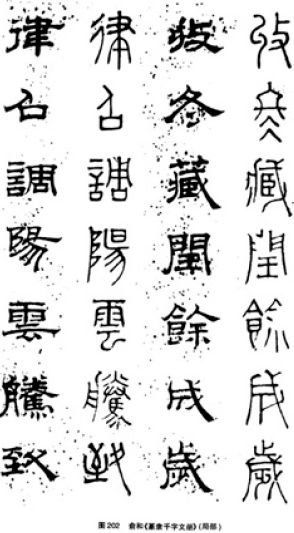 收冬藏閏餘成歲
收冬藏閏餘成歲
律召調陽雲騰致
律召調陽雲騰致
图 202 俞和《篆隶千字文册》(局部)